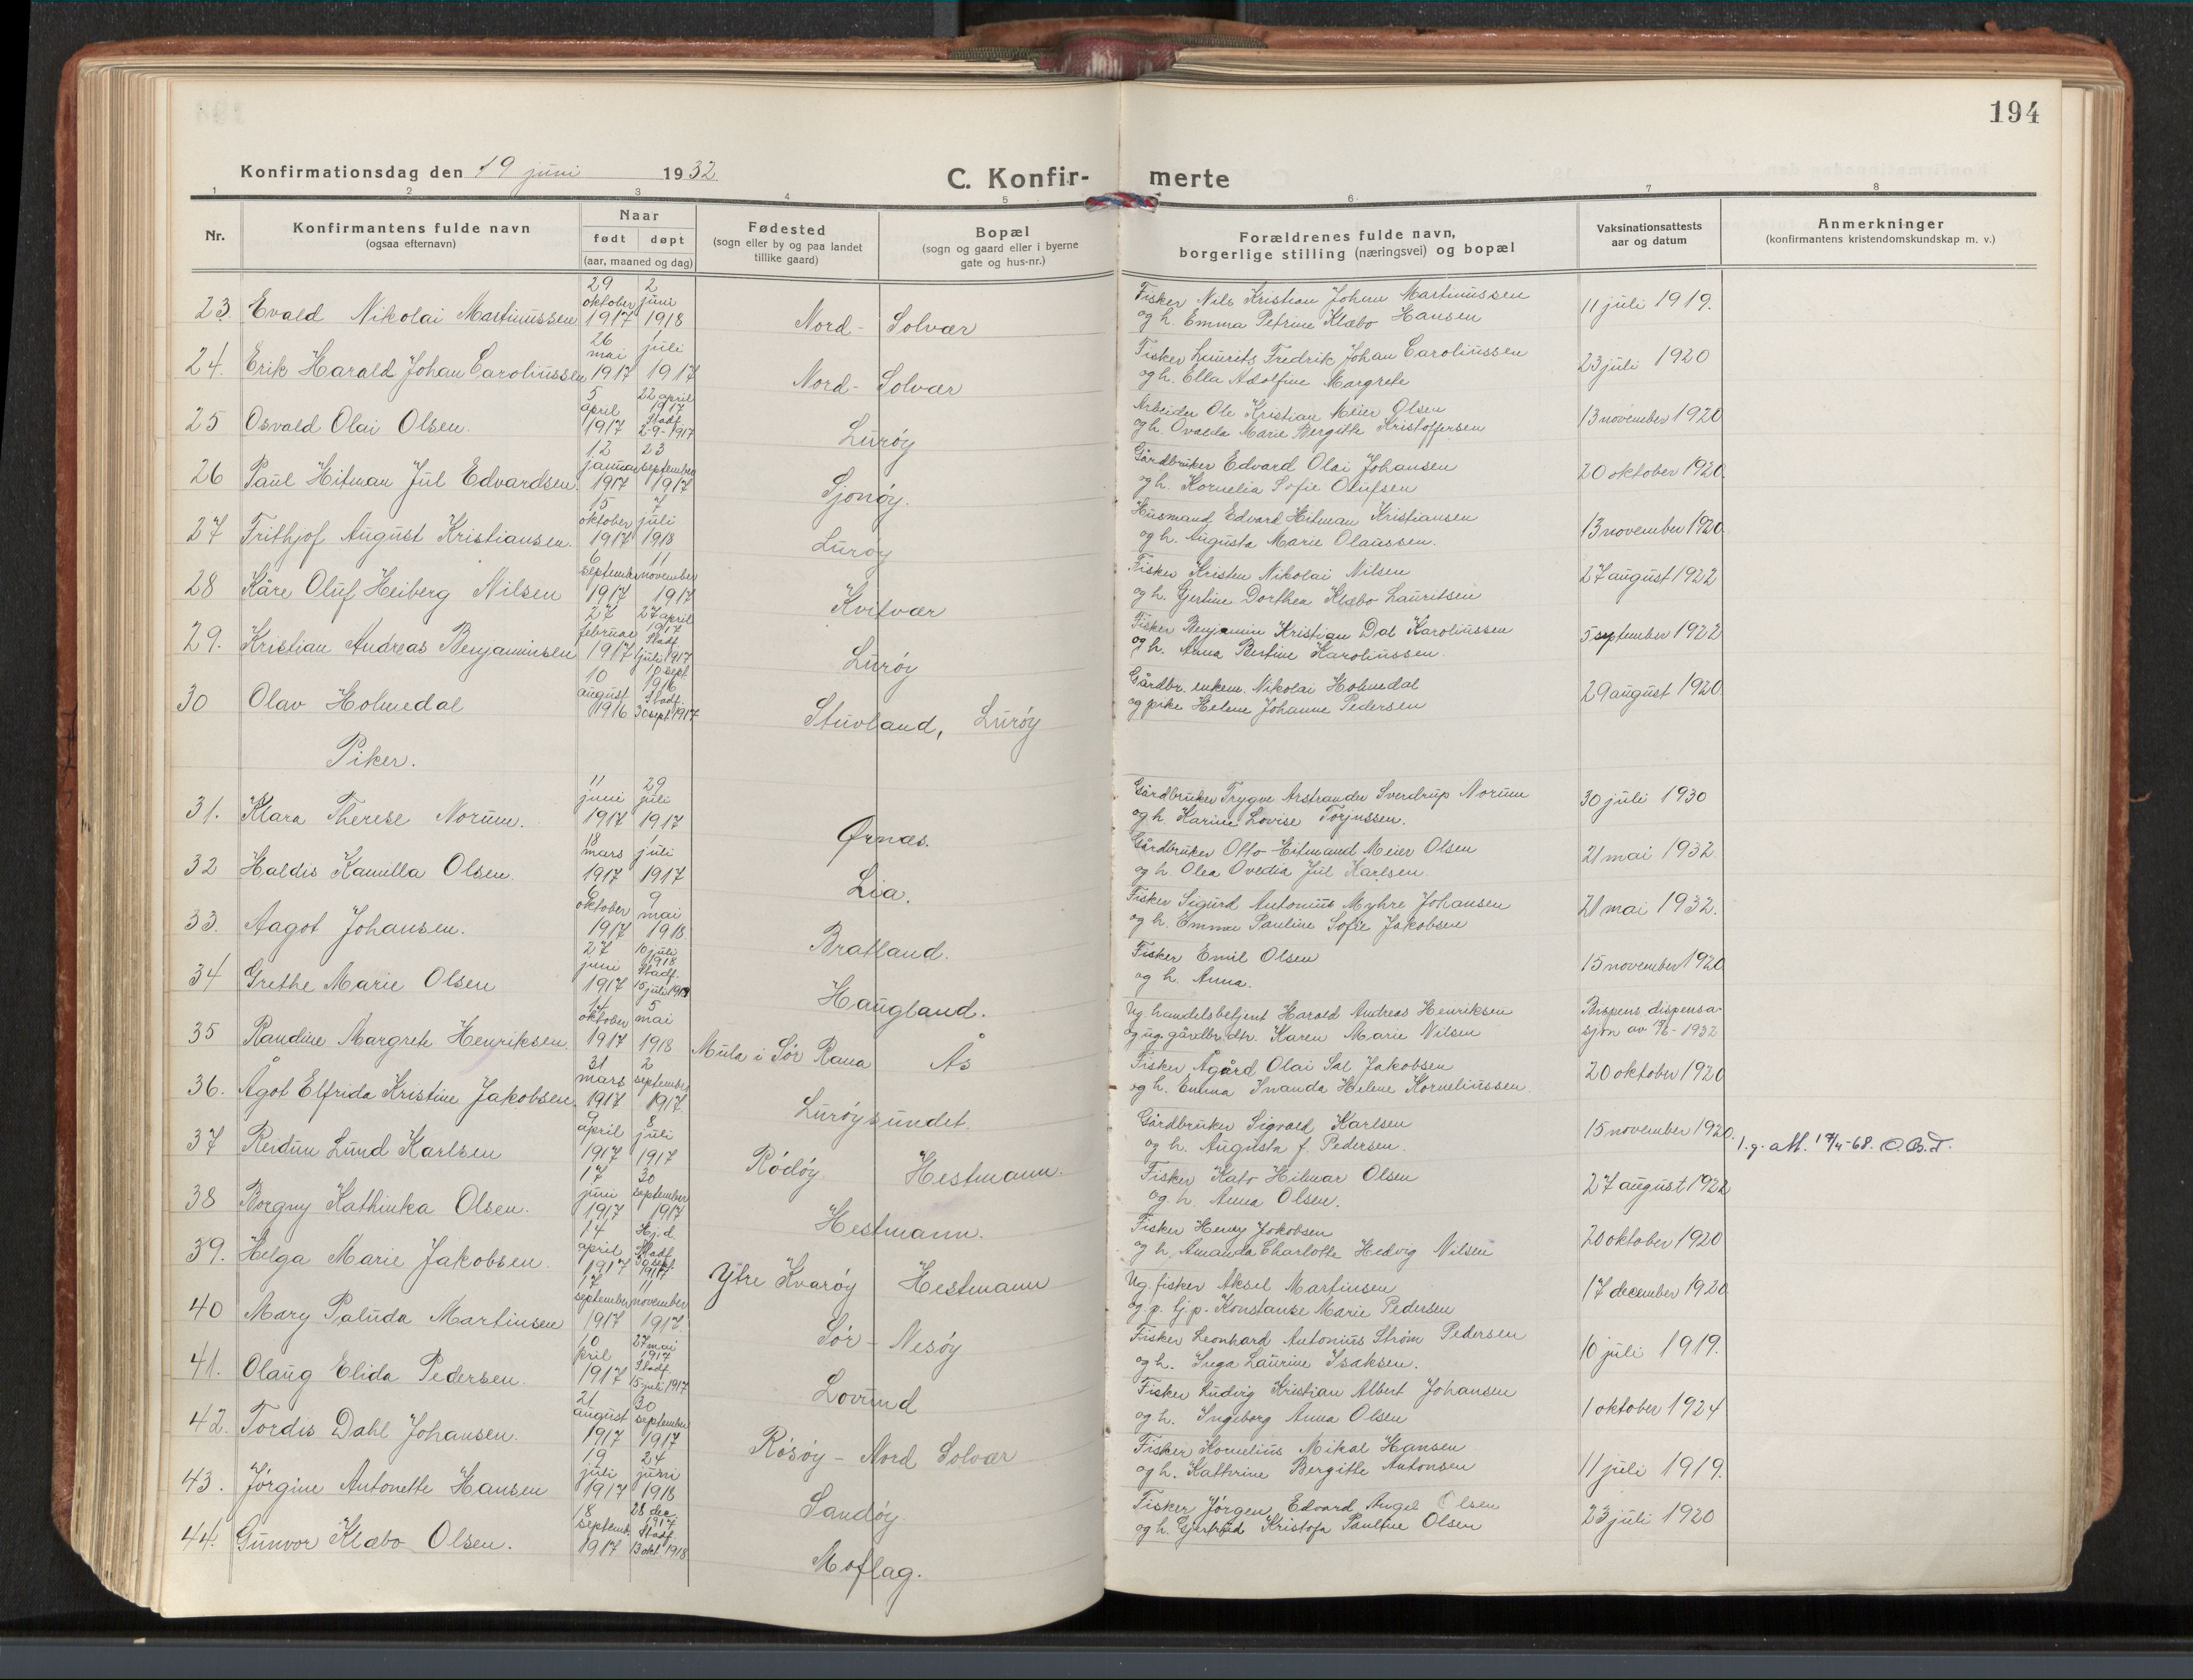 194
Konfirmationsdag den 19 juni 1932.
C. Konfir- merte
1 2 3 4 5 6 7 8
Nr.
Konfirmantens fulde navn
(ogsaa efternavn)
Naar
født døpt
(aar, maaned og dag)
Fødested
(sogn eller by og paa landet
tillike gaard)
Bopæl
(sogn og gaard eller i byerne
gate og hus-nr.)
Forældrenes fulde navn,
borgerlige stilling (næringsvei) og bopæl
Vaksinationsattests
aar og datum
Anmerkninger
(konfirmantens kristendomskundskap m. v.)
29 2
oktober juni
23. Evald Nikolai Martinussen 1917 1918 Nord- Solvær
Fisker Nils Kristian Johan Martinussen
og h. Emma Petrine Klæbo Hansen
11 juli 1919.
26 1
mai juli
24. Erik Harald Johan Caroliussen 1917 1917 Nord- Solvær
Fisker Laurits Fredrik Johan Caroliussen
og h. Ella Adolfine Margrete
23 juli 1920
5 22 april
april 1917
Stadf.
25 Osvald Olai Olsen. 1917 2-9-1917 Lurøy
Arbeider Ole Kristian Meier Olsen
og h. Ovalda Marie Bergitte Kristoffersen
13 november 1920
12 23
januar september
26 Paul Hitman Jul Edvardsen. 1917 1917 Sjonøy.
Gårdbruker Edvard Olai Johansen
og h. Kornelia Sofie Olufsen
20 oktober 1920.
15 7
oktober juli
27 Frithjof August Kristiansen. 1917 1918 Lurøy
Husmand Edvard Hitman Kristiansen
og h. Augusta Marie Olaussen.
13 november 1920.
6 11
september november
28 Kåre Oluf Heiberg Nilsen 1917 1917 Kvitvær
Fisker Kristen Nikolai Nilsen
og h. Gjertine Dorthea Klæbo Lauritsen
27 august 1922
27 27 april
februar 1917
Stadf.
29. Kristian Andreas Benjaminsen 1917 1 juli 1917 Lurøy
Fisker Benjamin Kristian Dal Karoliussen
og h. Anna Bertine Karoliussen.
5 september 1922
10 10 sept.
august 1916
Stadf.
30 Olav Holmedal 1916 30 sept. 1917 Stuvland, Lurøy
Gårdbr. enkem. Nikolai Holmedal
og pike Helene Johanne Pedersen
29 august 1920.
Piker.
11 29
juni juli
31. Klara Therese Norum. 1917 1917 Ørnes.
Gårdbruker Trygve Arstrander Sverdrup Norum
og h. Karine Lovise Torjussen.
30 juli 1930
18 1
mars juli
32 Haldis Kamilla Olsen. 1917 1917 Lia.
Gårdbruker Otto Eitmand Meier Olsen
og h. Olea Ovedia Jul Karlsen.
21 mai 1932.
6 9
oktober mai
33. Aagot Johansen. 1917 1918 Bratland.
Fisker Sigurd Antonius Myhre Johansen
og h. Emma Pauline Sofie Jakobsen
21 mai 1932.
27 10 juli
juni 1918
Stadf.
34 Grethe Marie Olsen 1917 15 juli 1918 Haugland.
Fisker Emil Olsen
og h. Anna.
15 november 1920
14 5
oktober mai
35 Randine Margrete Henriksen. 1917 1918 Mula i Sør Rana Ås
Ug. handelsbetjent Harald Andreas Henriksen
og ug. gårdbr. dtr. Karen Marie Nilsen
Bispens dispensa-
sjon av - 1932
31 2
mars september
36. Ågot Elfrida Kristine Jakobsen. 1917 1917. Lurøysundet.
Fisker Ågård Olai Sal Jakobsen
og h. Emma Ivanda Helene Korneliussen.
20 oktober 1920
9 8
april juli
37 Reidun Lund Karlsen 1917 1917 Rødøy Hestmann.
Gårdbruker Sigvald Karlsen
og h. Augusta f. Pedersen.
15 november 1920.
l.g. att. 17/4-68. O.B.T.
17 30
juni september
38 Borgny Kathinka Olsen. 1917 1917 Hestmann.
Fisker Kato Hilmar Olsen
og h. Anna Olsen.
27 august 1922
14 Hj.d.
april Stadf.
30 sept.
39. Helga Marie Jakobsen. 1917 1917 Ytre Kvarøy Hestmann
Fisker Henry Jakobsen
og h. Amanda Charlotte Hedvig Nilsen
20 oktober 1920
17 11
september november
40 Mary Paluda Martinsen 1917 1917. Sør- Nesøy
Ug. fisker Aksel Martinsen
og p. tj.p. Konstanse Marie Pedersen
17 december 1920
10 27 mai
pril 1917
Stadf.
41. Olaug Elida Pedersen. 1917 15 juli 1917 Lovund
Fisker Leonhard Antonius Strøm Pedersen
og h. Inga Laurine Isaksen.
10 juli 1919.
21 30
august september
42. Tordis Dahl Johansen. 1917 1917 Røsøy - Nord Solvær
Fisker Ludvig Kristian Albert Johansen
og h. Ingeborg Anna Olsen
1 oktober 1924
19 24
juli juni
43. Jørgine Antonette Hansen 1917 1918 Sandøy.
Fisker Kornelius Mikal Hansen
og h. Kathrine Bergitte Antonsen
11 juli 1919.
18 28 dec.
septemb. 1917
Stadf.
44. Gunvor Klæbo Olsen. 1917 13 okt. 1918 Moflag.
Fisker Jørgen Edvard Angel Olsen
og h. Gjertrud Kristofa Pauline Olsen
23 juli 1920